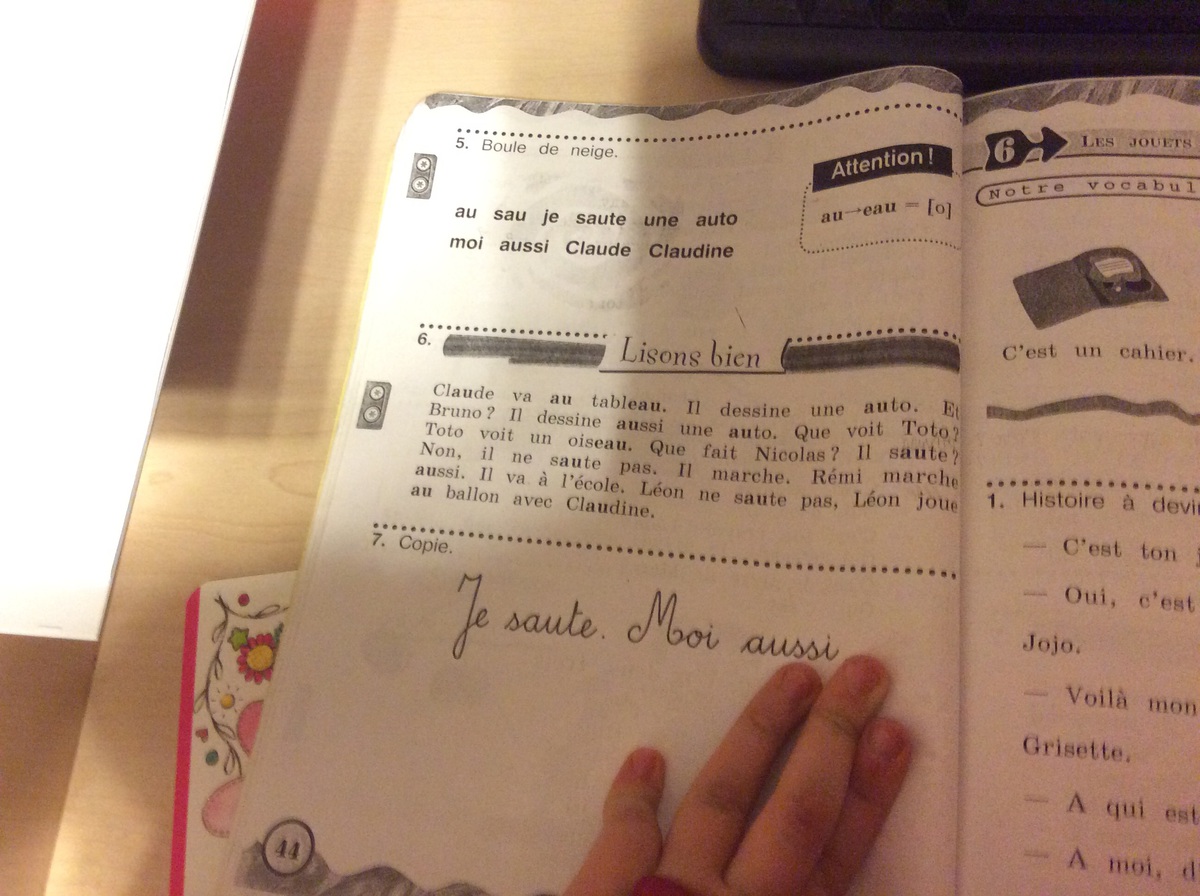 5. Boule de neige.
au sau je saute une auto
moi aussi Claude Claudine
Attention !
au→eau = [o]
6. Lisons bien
Claude va au tableau. Il dessine une auto. Et
Bruno? Il dessine aussi une auto. Que voit Toto?
Toto voit un oiseau. Que fait Nicolas? Il saute?
Non, il ne saute pas. Il marche. Rémi marche
aussi. Il va à l'école. Léon ne saute pas, Léon joue
au ballon avec Claudine.
7. Copie.
Je saute. Moi aussi
44
6 LES JOUETS
Notre vocabul
C'est un cahier.
1. Histoire à devi
— C'est ton
— Oui, c'est
Jojo.
— Voilà mon
Grisette.
— A qui est
— A moi, d